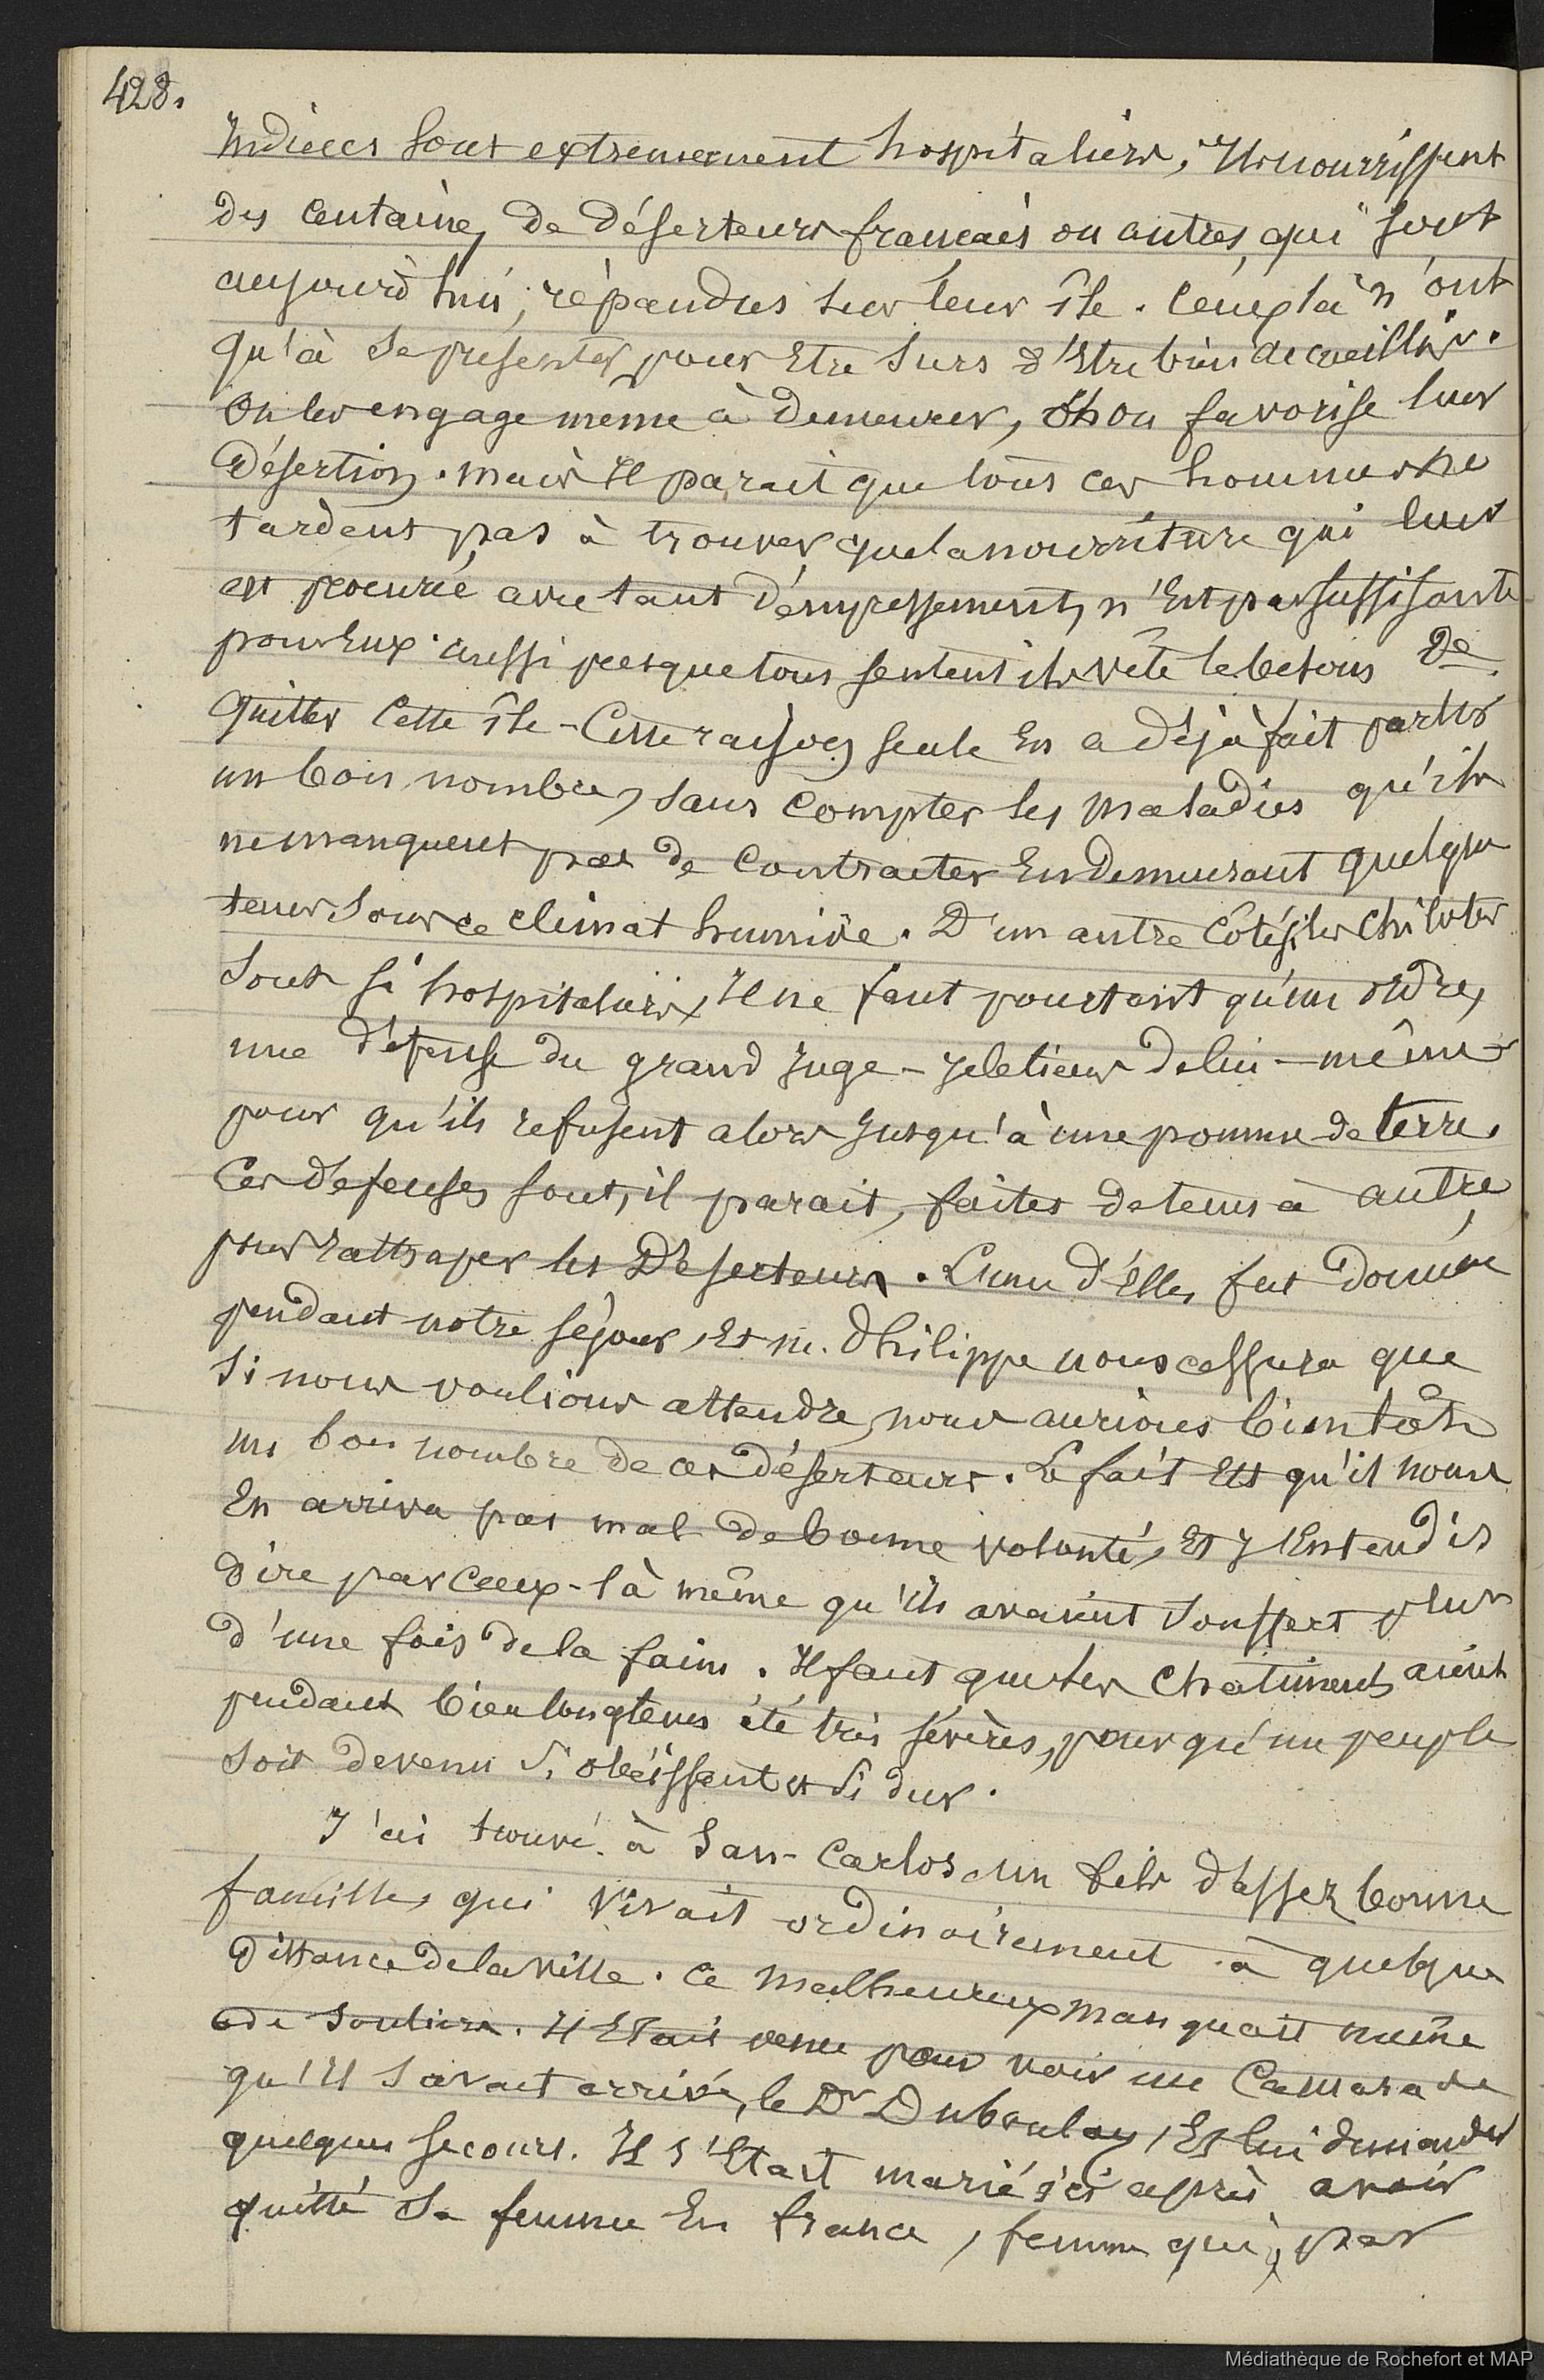 428.
Indiens sont extremement hospitaliers, Ils nourrissent
des centaines de déserteurs français ou autres, qui sont
aujourd'hui, répandus sur leur île. Ceux là n'ont
qu'à se presenter pour Etre surs d'Etre bien accueillis.
On les engage même à demeurer, Et on favorise leur
Désertion. mais Il parait que tous ces hommes ne
tardent pas à trouver que la nourriture qui leur
est procurée avec tant d'empressement, n'Est pas suffisante
pour Eux. aussi presque tous sentent ils vite le besoin de
quitter Cette île - Cette raison seule En a déjà fait partir
un bon nombre, sans compter les maladies qu'ils
ne manquent pas de contracter En demeurant quelque
tems sous ce climat humide. D'un autre côté, si les Chilotes
sont si hospitaliers, Il ne faut pourtant qu'un ordre,
une défense du grand Juge - de lui-même
pour qu'ils refusent alors Jusqu'à une pomme de terre.
Ces défenses sont, il parait, faites de tems à autre,
pour rattraper les Déserteurs. L'une d'Elles fut donnée
pendant notre séjour, Et M. Philippe nous assura que
si nous voulions attendre, nous aurions bientôt
un bon nombre de ces déserteurs. Le fait Est qu'il nous
En arriva pas mal de bonne volonté, Et J'Entendis
dire par ceux-là même qu'ils avaient souffert plus
d'une fois de la faim. Il faut que les chatiments aient
pendant bien longtems été très sévères, pour qu'un peuple
soit devenu si obéissant et si dur.
J'ai trouvé à San-Carlos un fils d'assez bonne
famille, qui vivait ordinairement à quelque
distance de la ville. Ce malheureux manquait même
de souliers. Il Etait venu pour voir un Camarade
qu'Il savait arrivé, le Dr Duboulay, Et lui demander
quelques secours. Il s'Etait marié ici après avoir
quitté sa femme En France, femme qui, par
Médiathèque de Rochefort et MAP